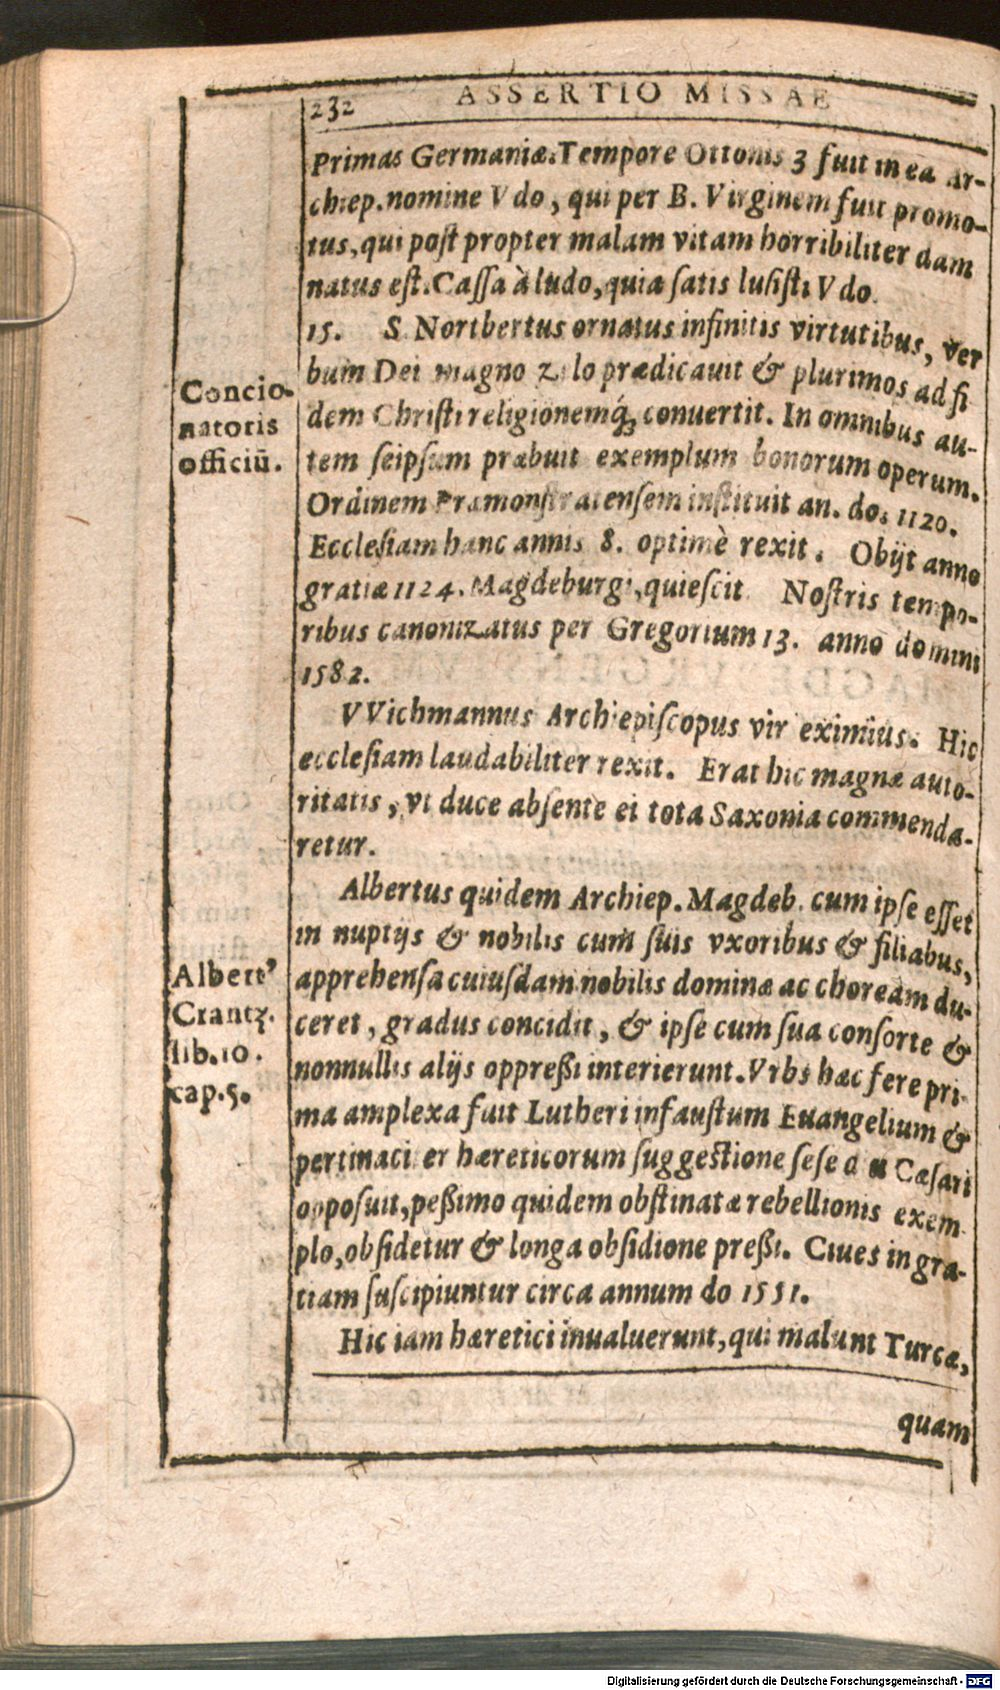 232 ASSERTIO MISSAE
Primas Germaniæ. Tempore Ottonis 3 fuit in ea Ar-
chiep. nomine Vdo, qui per B. Virginem fuit promo-
tus, qui post propter malam vitam horribiliter dam
natus est. Cassa à ludo, quia satis lusisti Vdo.
15. S. Nortbertus ornatus infinitis virtutibus, ver
bum Dei magno zelo prædicauit & plurimos ad fi
dem Christi religionemq́; conuertit. In omnibus au-
tem seipsum præbuit exemplum bonorum operum.
Ordinem Præmonstratensem instituit an. do. 1120.
Ecclesiam hanc annis 8. optimè rexit. Obijt anno
gratiæ 1124. Magdeburgi, quiescit. Nostris tempo-
ribus canonizatus per Gregorium 13. anno domini
1582.
Concio-
natoris
officiū.
VVichmannus Archiepiscopus vir eximius. Hic
ecclesiam laudabiliter rexit. Erat hic magnæ auto-
ritatis, vt duce absente ei tota Saxonia commenda-
retur.
Albertus quidem Archiep. Magdeb. cum ipse esset
in nuptijs & nobilis cum suis vxoribus & filiabus,
apprehensa cuiusdam nobilis dominæ ac choream du-
ceret, gradus concidit, & ipse cum sua consorte &
nonnullis alijs oppreßi interierunt. Vrbs hæc fere pri-
ma amplexa fuit Lutheri infaustum Euangelium &
pertinaciter hæreticorum suggestione sese Cæsari
opposuit, peßimo quidem obstinatæ rebellionis exem-
plo, obsidetur & longa obsidione preßi. Ciues in gra-
tiam suscipiuntur circa annum do 1551.
Hic iam hæretici inualuerunt, qui malunt Turcæ,
quam
Albert⁹
Crantz.
lib. 10.
cap. 5.
Digitalisierung gefördert durch die Deutsche Forschungsgemeinschaft - DFG